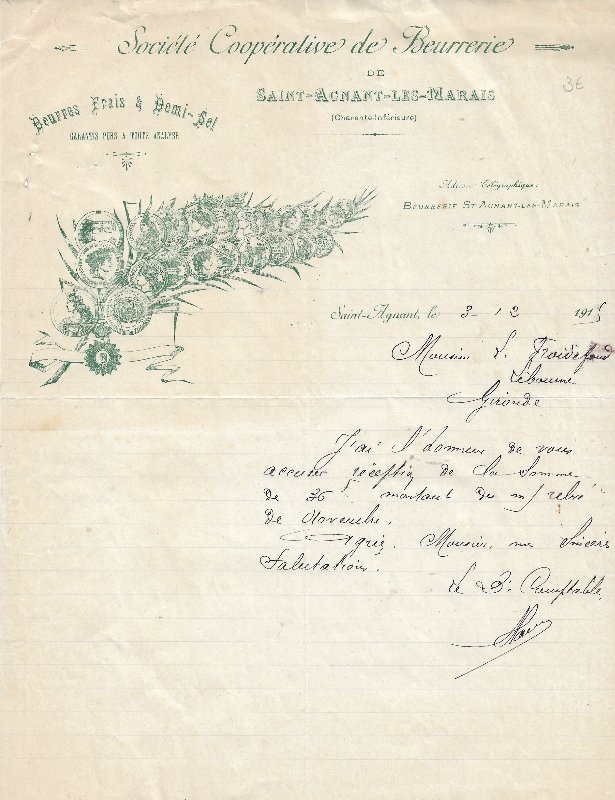 Société Coopérative de Beurrerie
DE
SAINT-AGNANT-LES-MARAIS
(Charente-Inférieure)
3€
Beurres Frais & Demi-Sel
GARANTIS PURS A TOUTE ANALYSE
Adresse Télégraphique:
BEURRERIE ST-AGNANT-LES-MARAIS
Saint-Agnant, le 3-12 1915
Monsieur L. Froidefond
Libourne
Gironde
J'ai l'honneur de vous
accuser réception de la somme
de 36 f montant du m/ relevé
de Novembre.
Agréez, Monsieur, mes sincères
Salutations.
Le Comptable